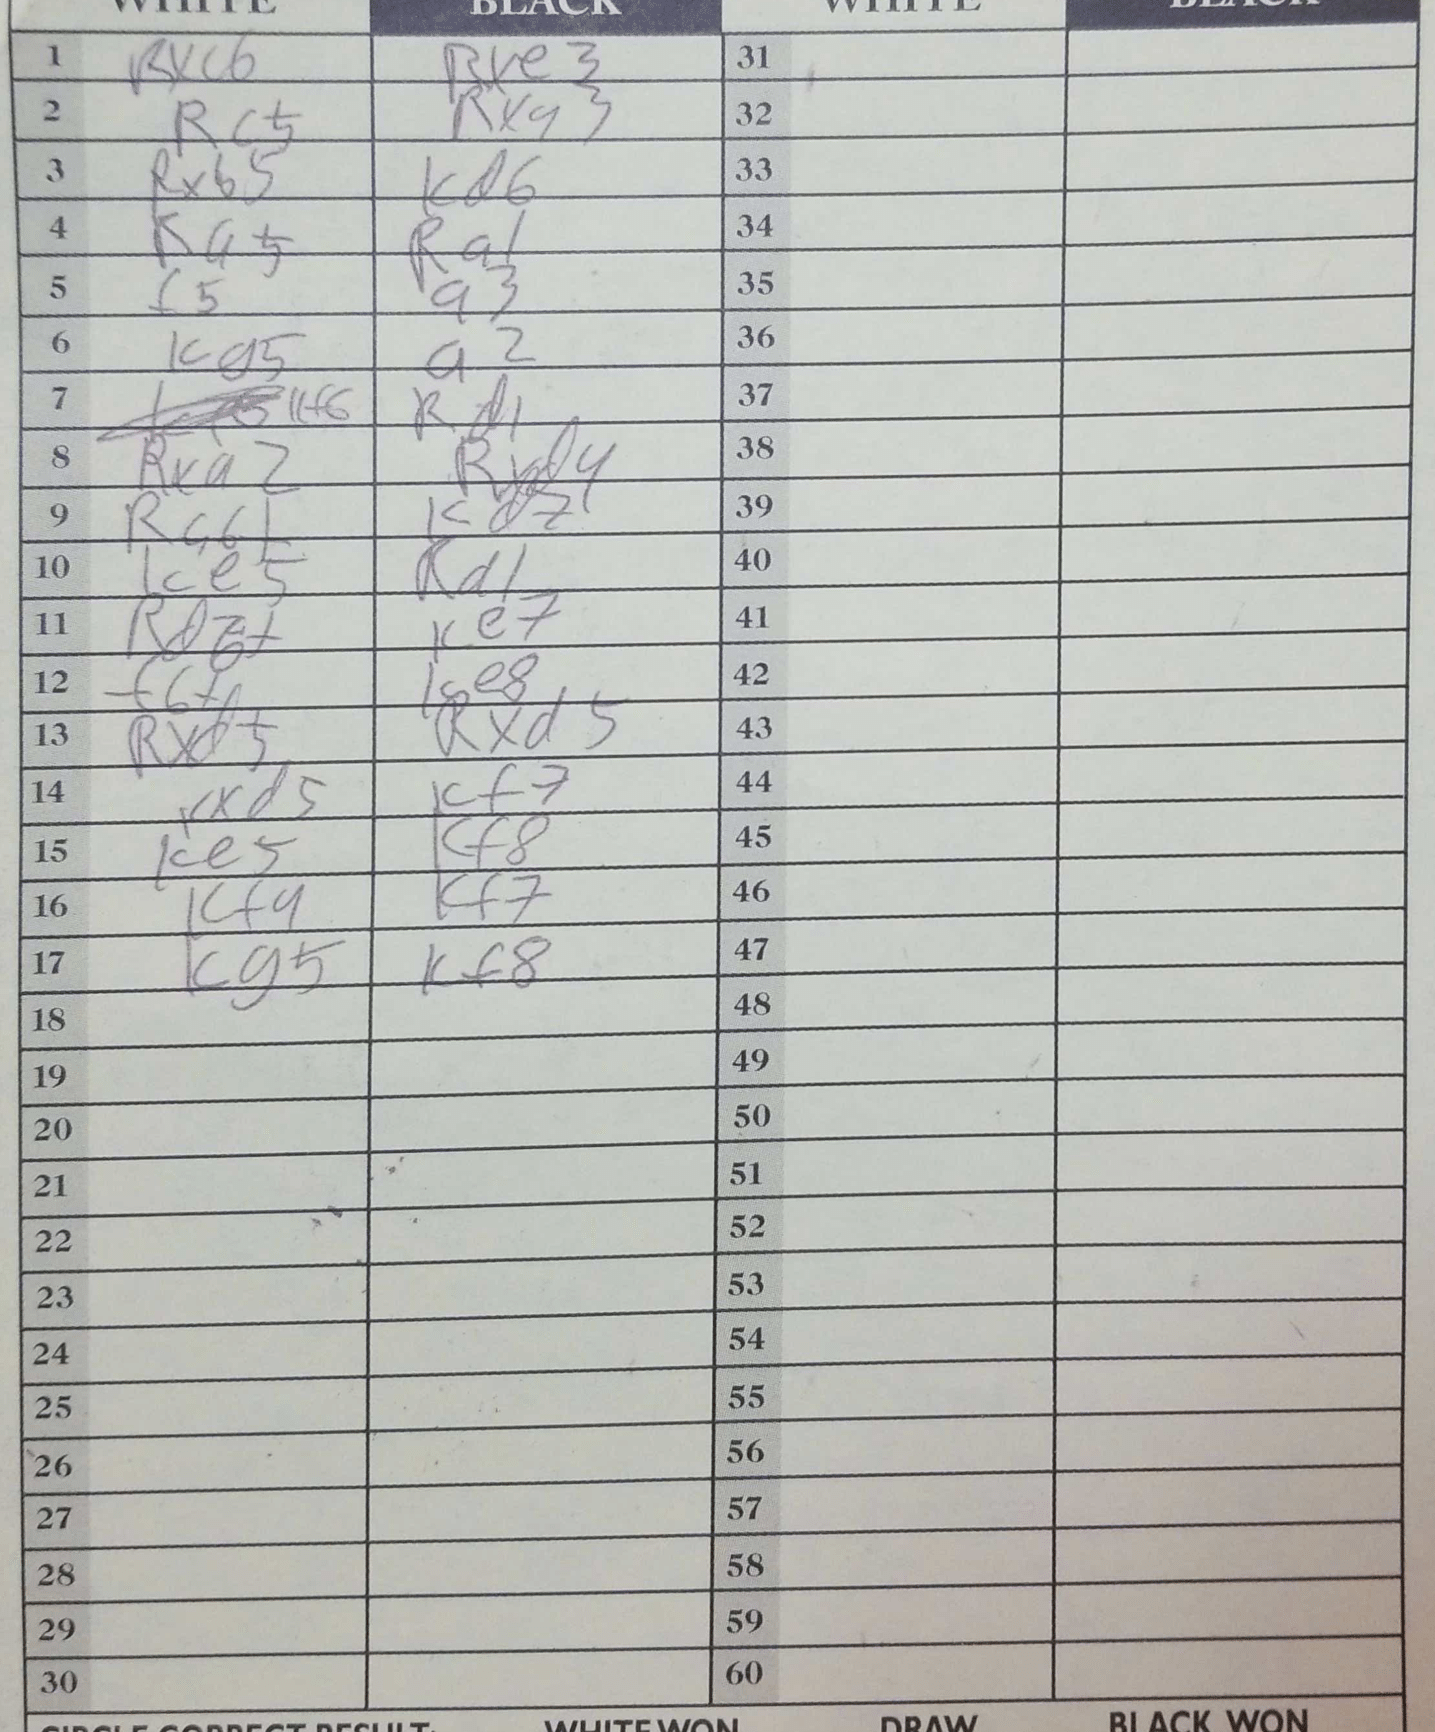 WHITE BLACK WHITE BLACK
1 Rxc6 Rxe3 31
2 Rc5 Rxa3 32
3 Rxb5 Kd6 33
4 Ra5 Ra1 34
5 f5 a3 35
6 Kg5 a2 36
7 Kf6 Rd1 37
8 Rxa2 Rxd4 38
9 Ra6+ Kd7 39
10 Ke5 Rd1 40
11 Rd6+ Ke7 41
12 f6+ Ke8 42
13 Rxd5 Rxd5 43
14 Kxd5 Kf7 44
15 Ke5 Kf8 45
16 Kf4 Kf7 46
17 Kg5 Kf8 47
18 48
19 49
20 50
21 51
22 52
23 53
24 54
25 55
26 56
27 57
28 58
29 59
30 60
CIRCLE CORRECT RESULT: WHITE WON DRAW BLACK WON